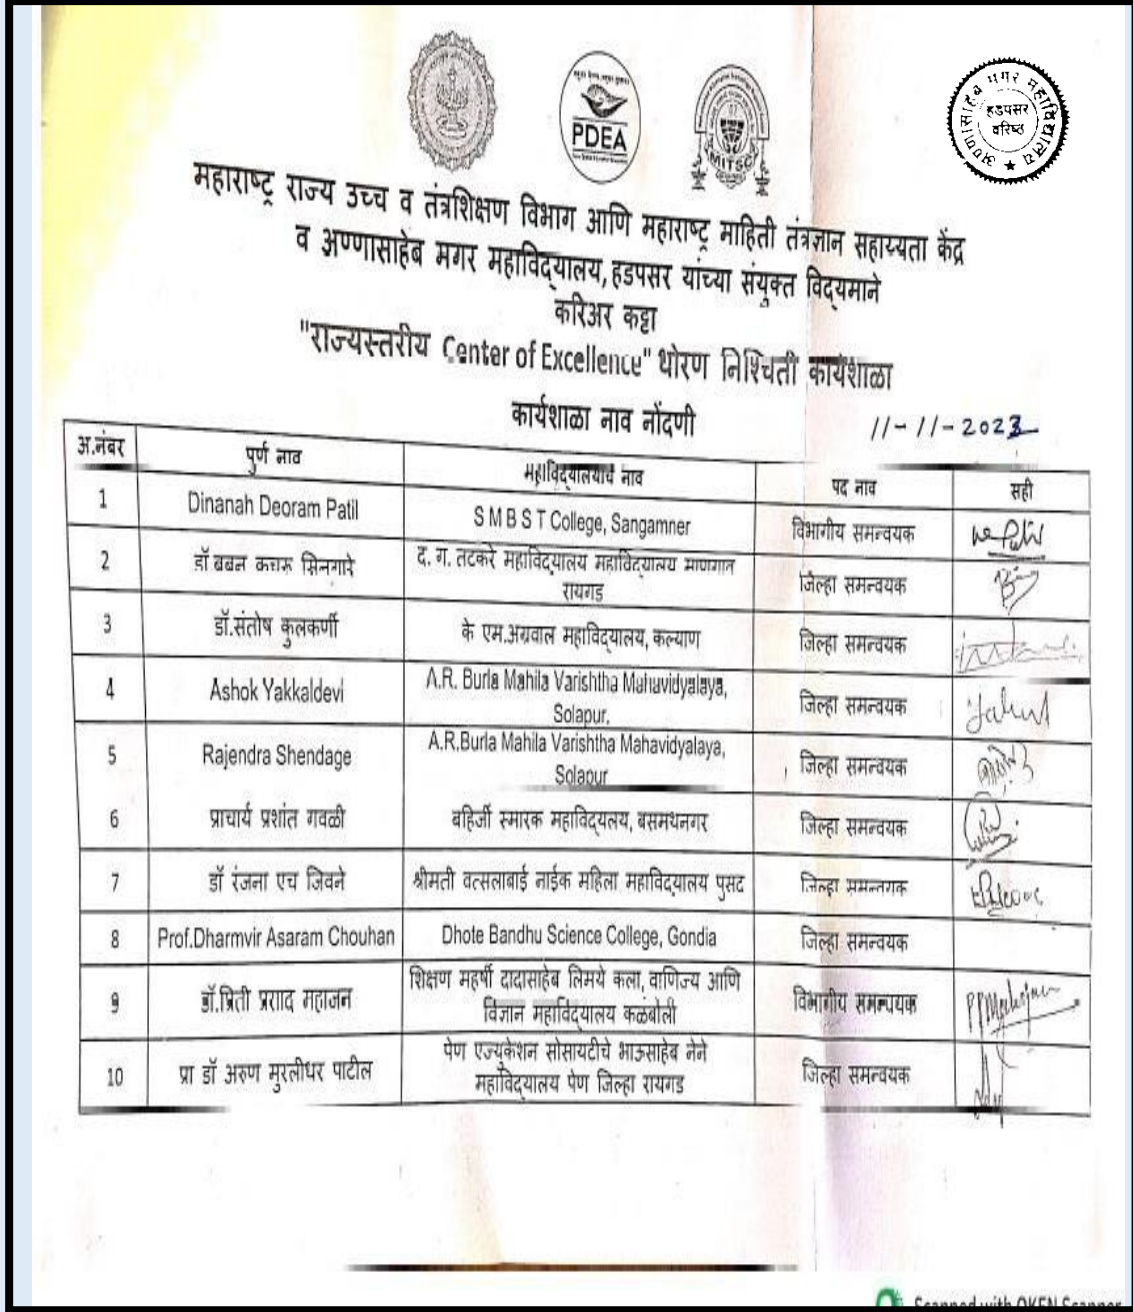 PDEA
MITSC
अण्णासाहेब मगर महाविद्यालय
हडपसर
वरिष्ठ
महाराष्ट्र राज्य उच्च व तंत्रशिक्षण विभाग आणि महाराष्ट्र माहिती तंत्रज्ञान सहाय्यता केंद्र
व अण्णासाहेब मगर महाविद्यालय, हडपसर यांच्या संयुक्त विद्यमाने
करिअर कट्टा
"राज्यस्तरीय Center of Excellence" धोरण निश्चिती कार्यशाळा
कार्यशाळा नाव नोंदणी 11-11-2023
अ.नंबर पुर्ण नाव महाविद्यालयाचे नाव पद नाव सही
1 Dinanah Deoram Patil S M B S T College, Sangamner विभागीय समन्वयक
2 डॉ बबन कचरू सिनगारे द. ग. तटकरे महाविद्यालय महाविद्यालय माणगाव
रायगड जिल्हा समन्वयक
3 डॉ.संतोष कुलकर्णी के एम.अग्रवाल महाविद्यालय, कल्याण जिल्हा समन्वयक
4 Ashok Yakkaldevi A.R. Burla Mahila Varishtha Mahavidyalaya,
Solapur, जिल्हा समन्वयक
5 Rajendra Shendage A.R.Burla Mahila Varishtha Mahavidyalaya,
Solapur जिल्हा समन्वयक
6 प्राचार्य प्रशांत गवळी बहिर्जी स्मारक महाविद्यलय, बसमथनगर जिल्हा समन्वयक
7 डॉ रंजना एच जिवने श्रीमती वत्सलाबाई नाईक महिला महाविद्यालय पुसद जिल्हा समन्वयक
8 Prof.Dharmvir Asaram Chouhan Dhote Bandhu Science College, Gondia जिल्हा समन्वयक
9 डॉ.प्रिती प्रसाद महाजन शिक्षण महर्षी दादासाहेब लिमये कला, वाणिज्य आणि
विज्ञान महाविद्यालय कळंबोली विभागीय समन्वयक
10 प्रा डॉ अरुण मुरलीधर पाटील पेण एज्युकेशन सोसायटीचे भाऊसाहेब नेने
महाविद्यालय पेण जिल्हा रायगड जिल्हा समन्वयक
Scanned with OKEN Scanner